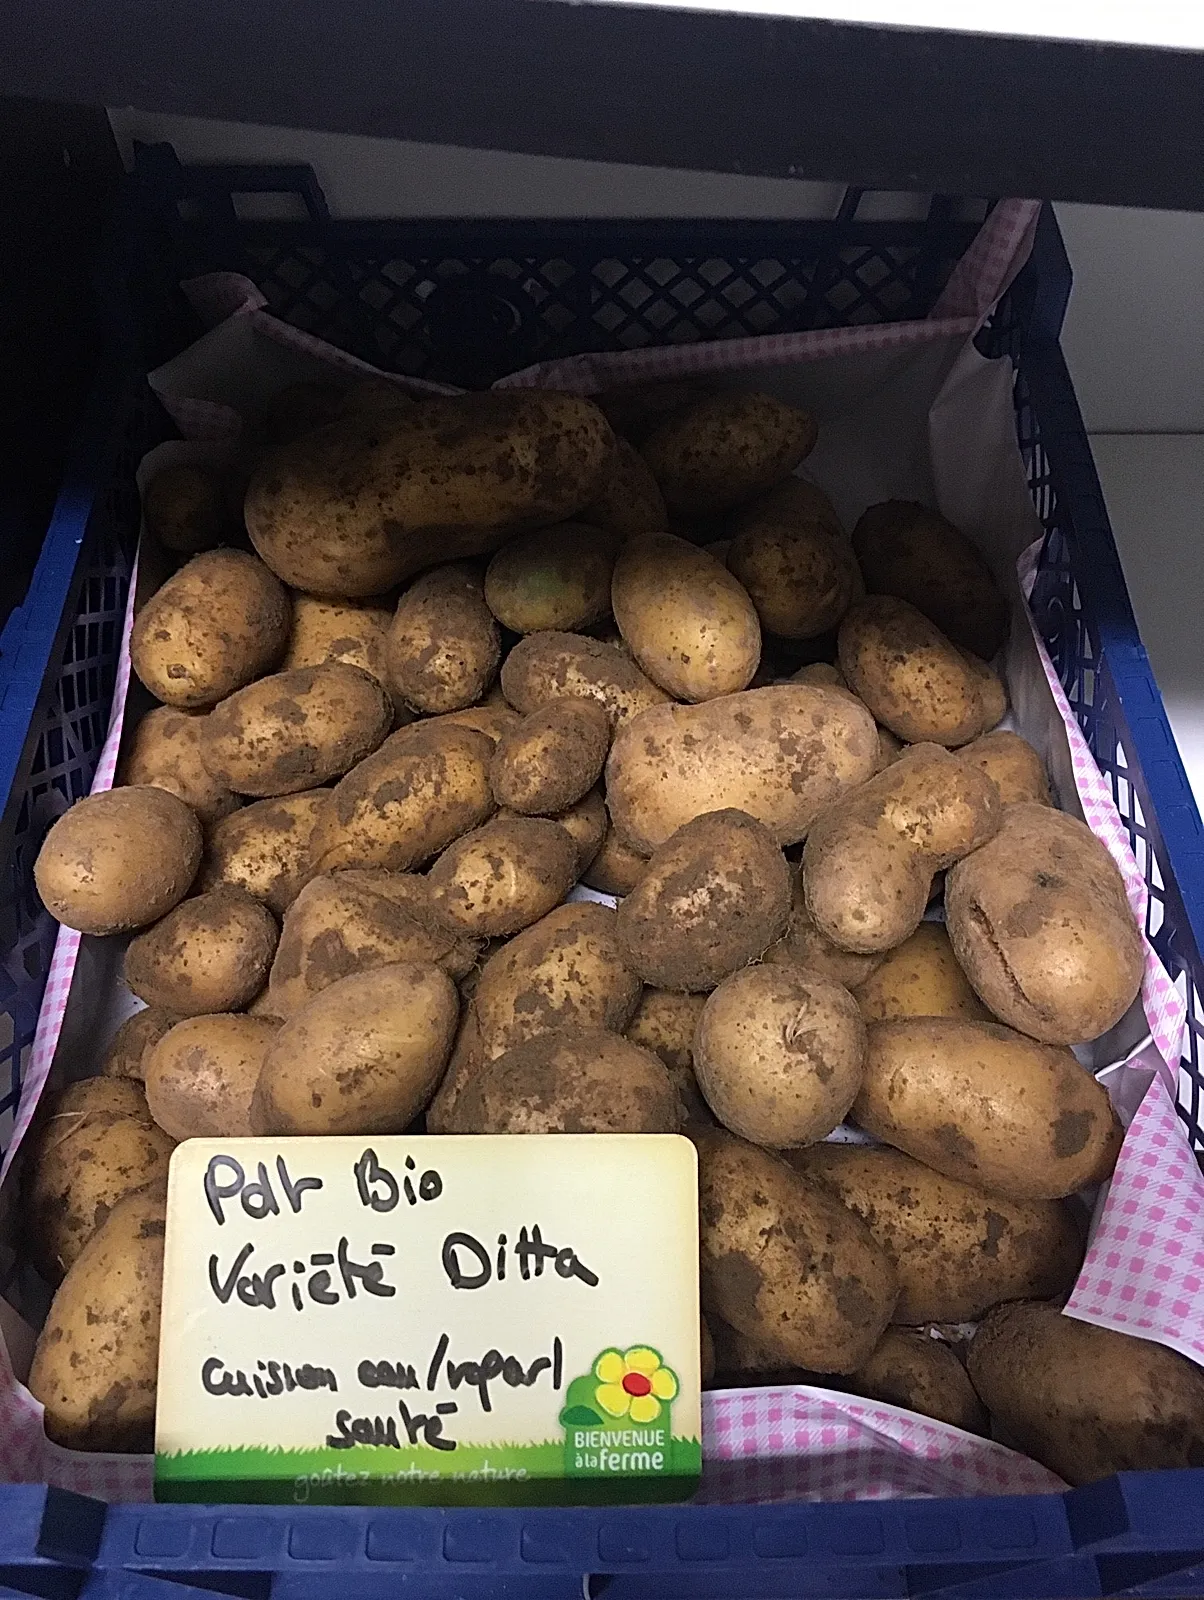 Pdt Bio
Variété Ditta
cuisson eau/vapeur/
sauté
BIENVENUE
à la ferme
goûtez notre nature